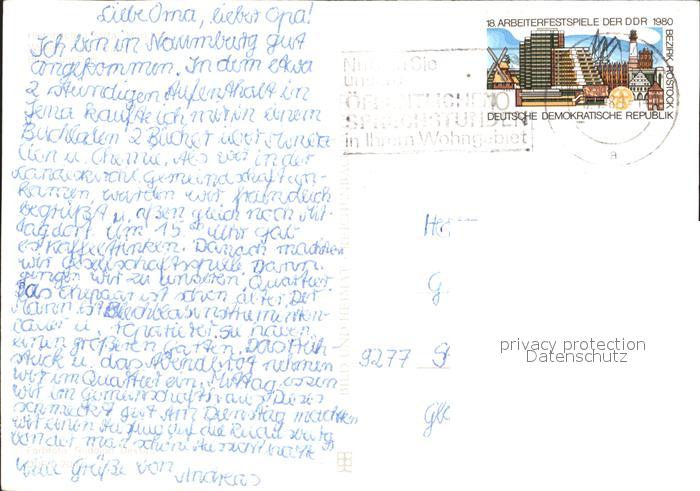 Liebe Oma, lieber Opa!
Ich bin in Naumburg gut
angekommen. In dem etwa
2 stündigen Aufenthalt in
Jena kaufte ich mir in einem
Buchladen 2 Bücher über Minera-
lien u. Chemie. Als wir in der
Landeskirchl. Gemeinschaft an-
kamen, wurden wir freundlich
begrüßt u. aßen gleich noch Mit-
tag dort. Um 15 Uhr gab
es Kaffeetrinken. Danach machten
wir Gesellschaftsspiele. Dann
gingen wir zu unseren Quartier.
Das Ehepaar ist schon älter. Der
Mann ist Blechblasinstrumenten-
bauer u.
einen größeren Garten. Das Früh-
stück u. das Abendbrot nehmen
wir im Quartier ein. Mittag essen
wir im Gemeinschaftshaus. Dieses
schmeckt gut. Am Dienstag machten
wir einen Ausflug auf die Rudelsburg
von der man schöne Aussicht hatte.
Viele Grüße von
Andreas
18. ARBEITERFESTSPIELE DER DDR 1980
BEZIRK ROSTOCK
10
DEUTSCHE DEMOKRATISCHE REPUBLIK
Nutzen Sie
unsere
ÖFFENTLICHEN
SPRECHSTUNDEN
in Ihrem Wohngebiet
a
He
G
9277
privacy protection
Datenschutz